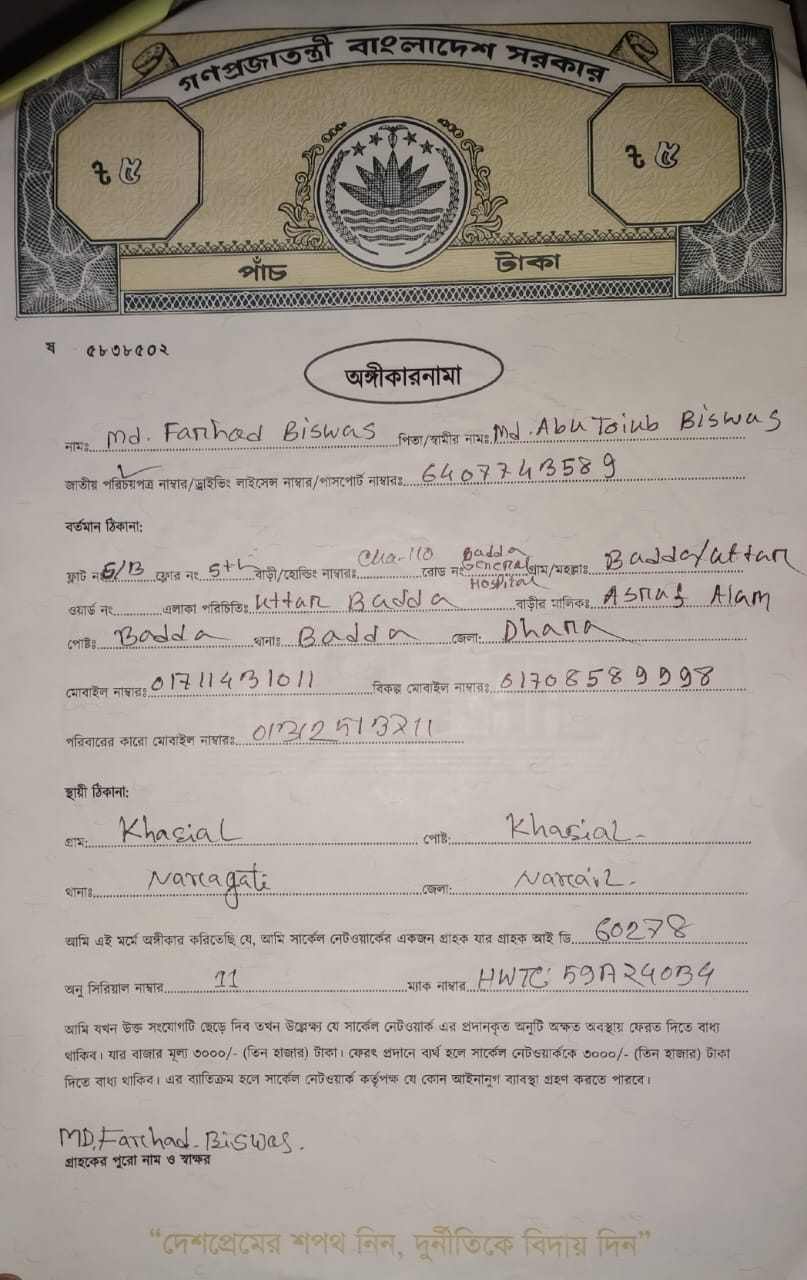 গণপ্রজাতন্ত্রী বাংলাদেশ সরকার
৳ ৫ ৳ ৫
পাঁচ টাকা
ষ ৫৮৩৮৫০২
অঙ্গীকারনামা
নামঃ Md. Farhad Biswas পিতা/স্বামীর নামঃ Md. Abu Toiub Biswas
জাতীয় পরিচয়পত্র নাম্বার/ড্রাইভিং লাইসেন্স নাম্বার/পাসপোর্ট নাম্বারঃ 6407743589
বর্তমান ঠিকানা:
ফ্লাট নং 5/B ফ্লোর নং 5th বাড়ী/হোল্ডিং নাম্বারঃ Cha-110 রোড নং Badda General Hospital গ্রাম/মহল্লাঃ Badda/uttar
ওয়ার্ড নং এলাকা পরিচিতিঃ Uttar Badda বাড়ীর মালিকঃ Asraf Alam
পোষ্টঃ Badda থানাঃ Badda জেলা: Dhaka
মোবাইল নাম্বারঃ 01711431011 বিকল্প মোবাইল নাম্বারঃ 01708589998
পরিবারের কারো মোবাইল নাম্বারঃ
স্থায়ী ঠিকানা:
গ্রাম: Khasial পোষ্ট: Khasial-
থানাঃ Naragati জেলা: Narail.
আমি এই মর্মে অঙ্গীকার করিতেছি যে, আমি সার্কেল নেটওয়ার্কের একজন গ্রাহক যার গ্রাহক আই ডি 60278
অনু সিরিয়াল নাম্বার 11 ম্যাক নাম্বার HWTC: 59A24034
আমি যখন উক্ত সংযোগটি ছেড়ে দিব তখন উল্লেক্ষ্য যে সার্কেল নেটওয়ার্ক এর প্রদানকৃত অনুটি অক্ষত অবস্থায় ফেরত দিতে বাধ্য
থাকিব। যার বাজার মূল্য ৩০০০/- (তিন হাজার) টাকা। ফেরৎ প্রদানে ব্যর্থ হলে সার্কেল নেটওয়ার্ককে ৩০০০/- (তিন হাজার) টাকা
দিতে বাধ্য থাকিব। এর ব্যতিক্রম হলে সার্কেল নেটওয়ার্ক কর্তৃপক্ষ যে কোন আইনানুগ ব্যাবস্থা গ্রহণ করতে পারবে।
MD. Farhad-Biswas.
গ্রাহকের পুরো নাম ও স্বাক্ষর
“দেশপ্রেমের শপথ নিন, দুর্নীতিকে বিদায় দিন”